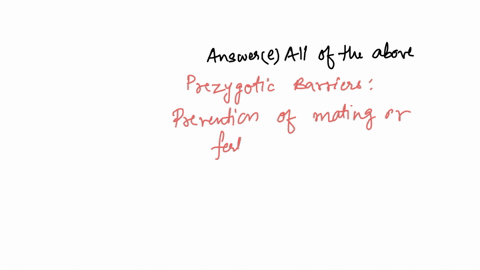 Answer(e) All of the above
Prezygotic Barriers:
Prevention of mating or
fer